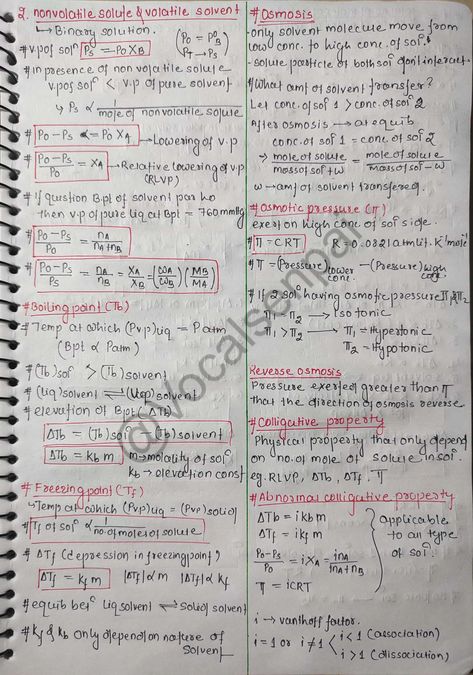 2. nonvolatile solute & volatile solvent
↳ Binary solution.
# v.p of solⁿ Ps = Po XB (Po = P°B
PT → Ps)
# in presence of non volatile solute
v.p of solⁿ < v.p of pure solvent
↳ Ps ∝ 1/mole of nonvolatile solute
# Po - Ps = Po XA → Lowering of v.p
# Po - Ps/Po = XA → Relative lowering of v.p
(RLVP)
# if question Bpt of solvent par ho
then v.p of pure liq at Bpt = 760mmHg
# Po - Ps/Ps = nA/nB
# Po - Ps/Ps = nA/nB = XA/XB = (WA/WB) (MB/MA)
# Boiling point (Tb)
* Temp at which (Pvp)liq = Patm
(Bpt ∝ Patm)
* (Tb) solⁿ > (Tb) solvent
* (Liq) solvent ⇌ (Vap) solvent
* elevation of Bpt (ΔTb)
ΔTb = (Tb)solⁿ - (Tb) solvent
ΔTb = Kb m m → molality of solⁿ
Kb → elevation const
# Freezing point (Tf)
↳ Temp at which (Pvp)liq = (Pvp)solid
# Tf of solⁿ ∝ 1/no. of moles of solute
* ΔTf (depression in freezing point)
ΔTf = Kf m |ΔTf ∝ m |ΔTf ∝ Kf
* equib betⁿ Liq solvent ⇌ solid solvent
* Kf & Kb only depend on nature of
solvent
# Osmosis
- only solvent molecule move from
low conc. to high conc. of solⁿ &
solute particle of both solⁿ don't interact.
# What amt of solvent transfer?
Let conc. of sol 1 > conc. of sol 2
After osmosis → at equib
conc. of sol 1 = conc. of sol 2
⇒ mole of solute/mass of sol + w = mole of solute/mass of sol - w
w → amt of solvent transfered.
# Osmotic pressure (π)
exert on high conc. of solⁿ side.
# π = CRT R = 0.0821 atm lit. K⁻¹mole⁻¹
* π = (Pressure) lower conc. - (Pressure) high conc
* If 2 solⁿ having osmotic pressure π1 & π2
π1 = π2 → Isotonic
π1 > π2 → π1 = Hypertonic
π2 = Hypotonic
Reverse osmosis
Pressure exerted greater than π
that the direction of osmosis reverse
# Colligative property
Physical property that only depend
on no. of mole of solute in solⁿ.
eg. RLVP, ΔTb, ΔTf, π
# Abnormal colligative property
ΔTb = i kb m
ΔTf = i kf m
Po - Ps/Po = i XA = i nA/nA + nB
π = iCRT
Applicable
to an type
of solⁿ
i → vanthoff factor.
i = 1 or i ≠ 1 < i < 1 (association)
i > 1 (dissociation)
@vocalsenpai